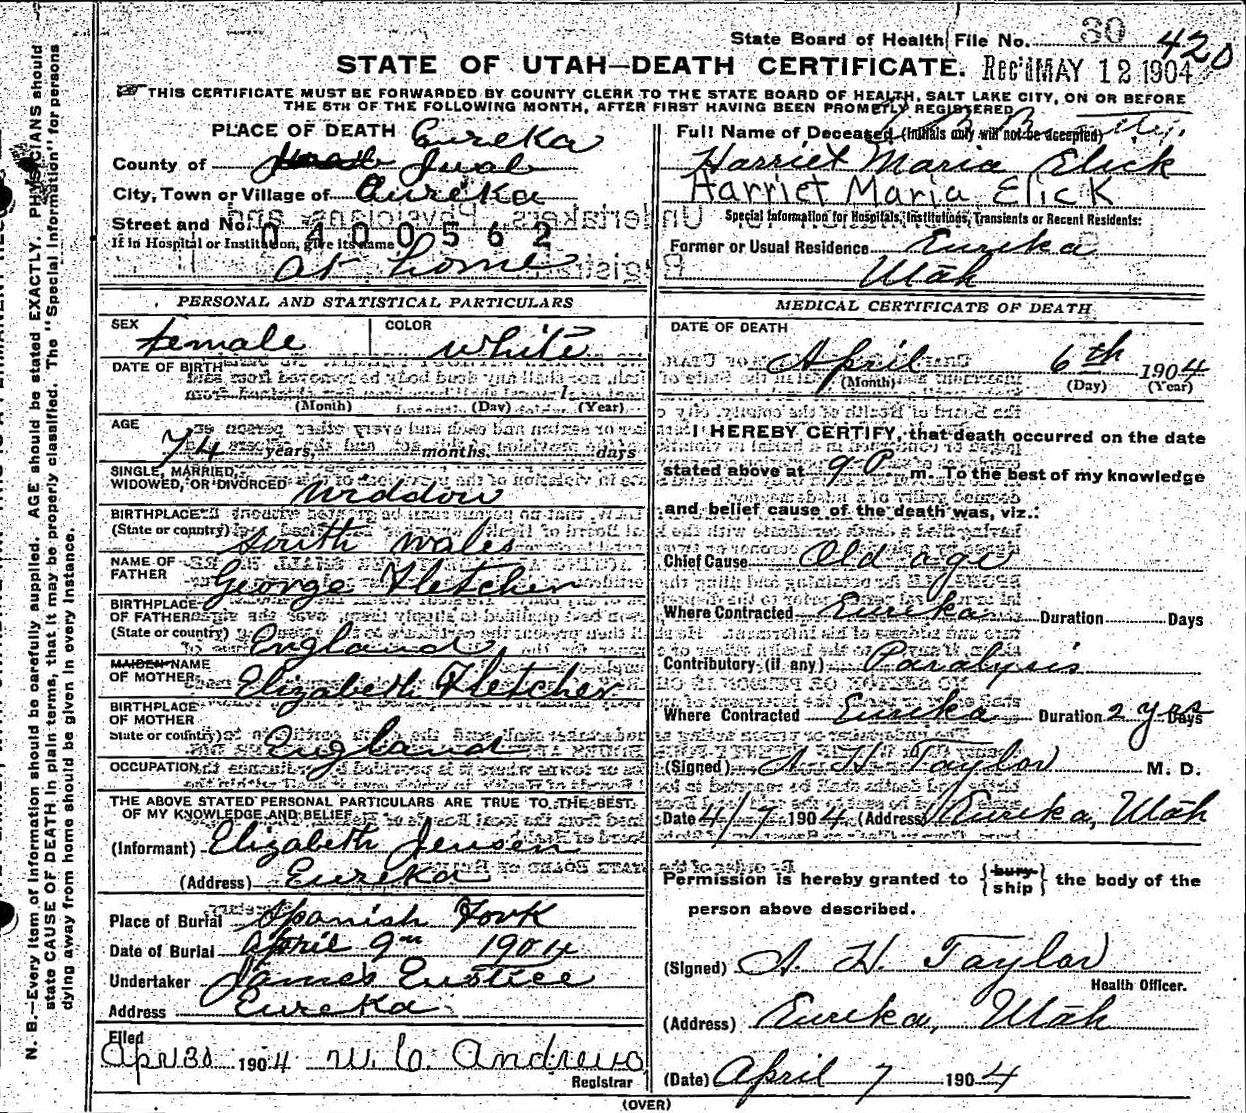 State Board of Health File No. 30 420
STATE OF UTAH—DEATH CERTIFICATE. Rec'd MAY 12 1904
THIS CERTIFICATE MUST BE FORWARDED BY COUNTY CLERK TO THE STATE BOARD OF HEALTH, SALT LAKE CITY, ON OR BEFORE
THE 5TH OF THE FOLLOWING MONTH, AFTER FIRST HAVING BEEN PROMPTLY REGISTERED.
PLACE OF DEATH Eureka
County of Juab
City, Town or Village of Eureka
Street and No.
0400562
If in Hospital or Institution, give its name
At home
PERSONAL AND STATISTICAL PARTICULARS
SEX female COLOR white
DATE OF BIRTH
(Month) (Day) (Year)
AGE 74 years, months, days
SINGLE, MARRIED,
WIDOWED, OR DIVORCED Widdow
BIRTHPLACE
(State or country) South Wales
NAME OF
FATHER George Fletcher
BIRTHPLACE
OF FATHER
(State or country) England
MAIDEN NAME
OF MOTHER Elizabeth Fletcher
BIRTHPLACE
OF MOTHER
State or country) England
OCCUPATION
THE ABOVE STATED PERSONAL PARTICULARS ARE TRUE TO THE BEST
OF MY KNOWLEDGE AND BELIEF
(Informant) Elizabeth Jensen
(Address) Eureka
Place of Burial Spanish Fork
Date of Burial April 9th 1904
Undertaker James Eustice
Address Eureka
Filed
Apr 30 1904 W. C. Andrews
Registrar
Full Name of Deceased (Initials only will not be accepted)
Harriet Maria Elick
Harriet Maria Elick
Special Information for Hospitals, Institutions, Transients or Recent Residents:
Former or Usual Residence Eureka
Utah
MEDICAL CERTIFICATE OF DEATH
DATE OF DEATH
April 6th 1904
(Month) (Day) (Year)
I HEREBY CERTIFY, that death occurred on the date
stated above at 9 P. m. To the best of my knowledge
and belief cause of the death was, viz.:
Chief Cause Old age
Where Contracted Eureka Duration Days
Contributory (if any) Paralysis
Where Contracted Eureka Duration 2 yrs Days
(Signed) A H. Taylor M. D.
Date 4/7 1904 (Address) Eureka, Utah
Permission is hereby granted to {bury
ship} the body of the
person above described.
(Signed) A. H. Taylor
Health Officer.
(Address) Eureka, Utah
(Date) April 7 1904
(OVER)
N. B.—Every item of information should be carefully supplied. AGE should be stated EXACTLY. PHYSICIANS should
state CAUSE OF DEATH in plain terms, that it may be properly classified. The "Special Information" for persons
dying away from home should be given in every instance.